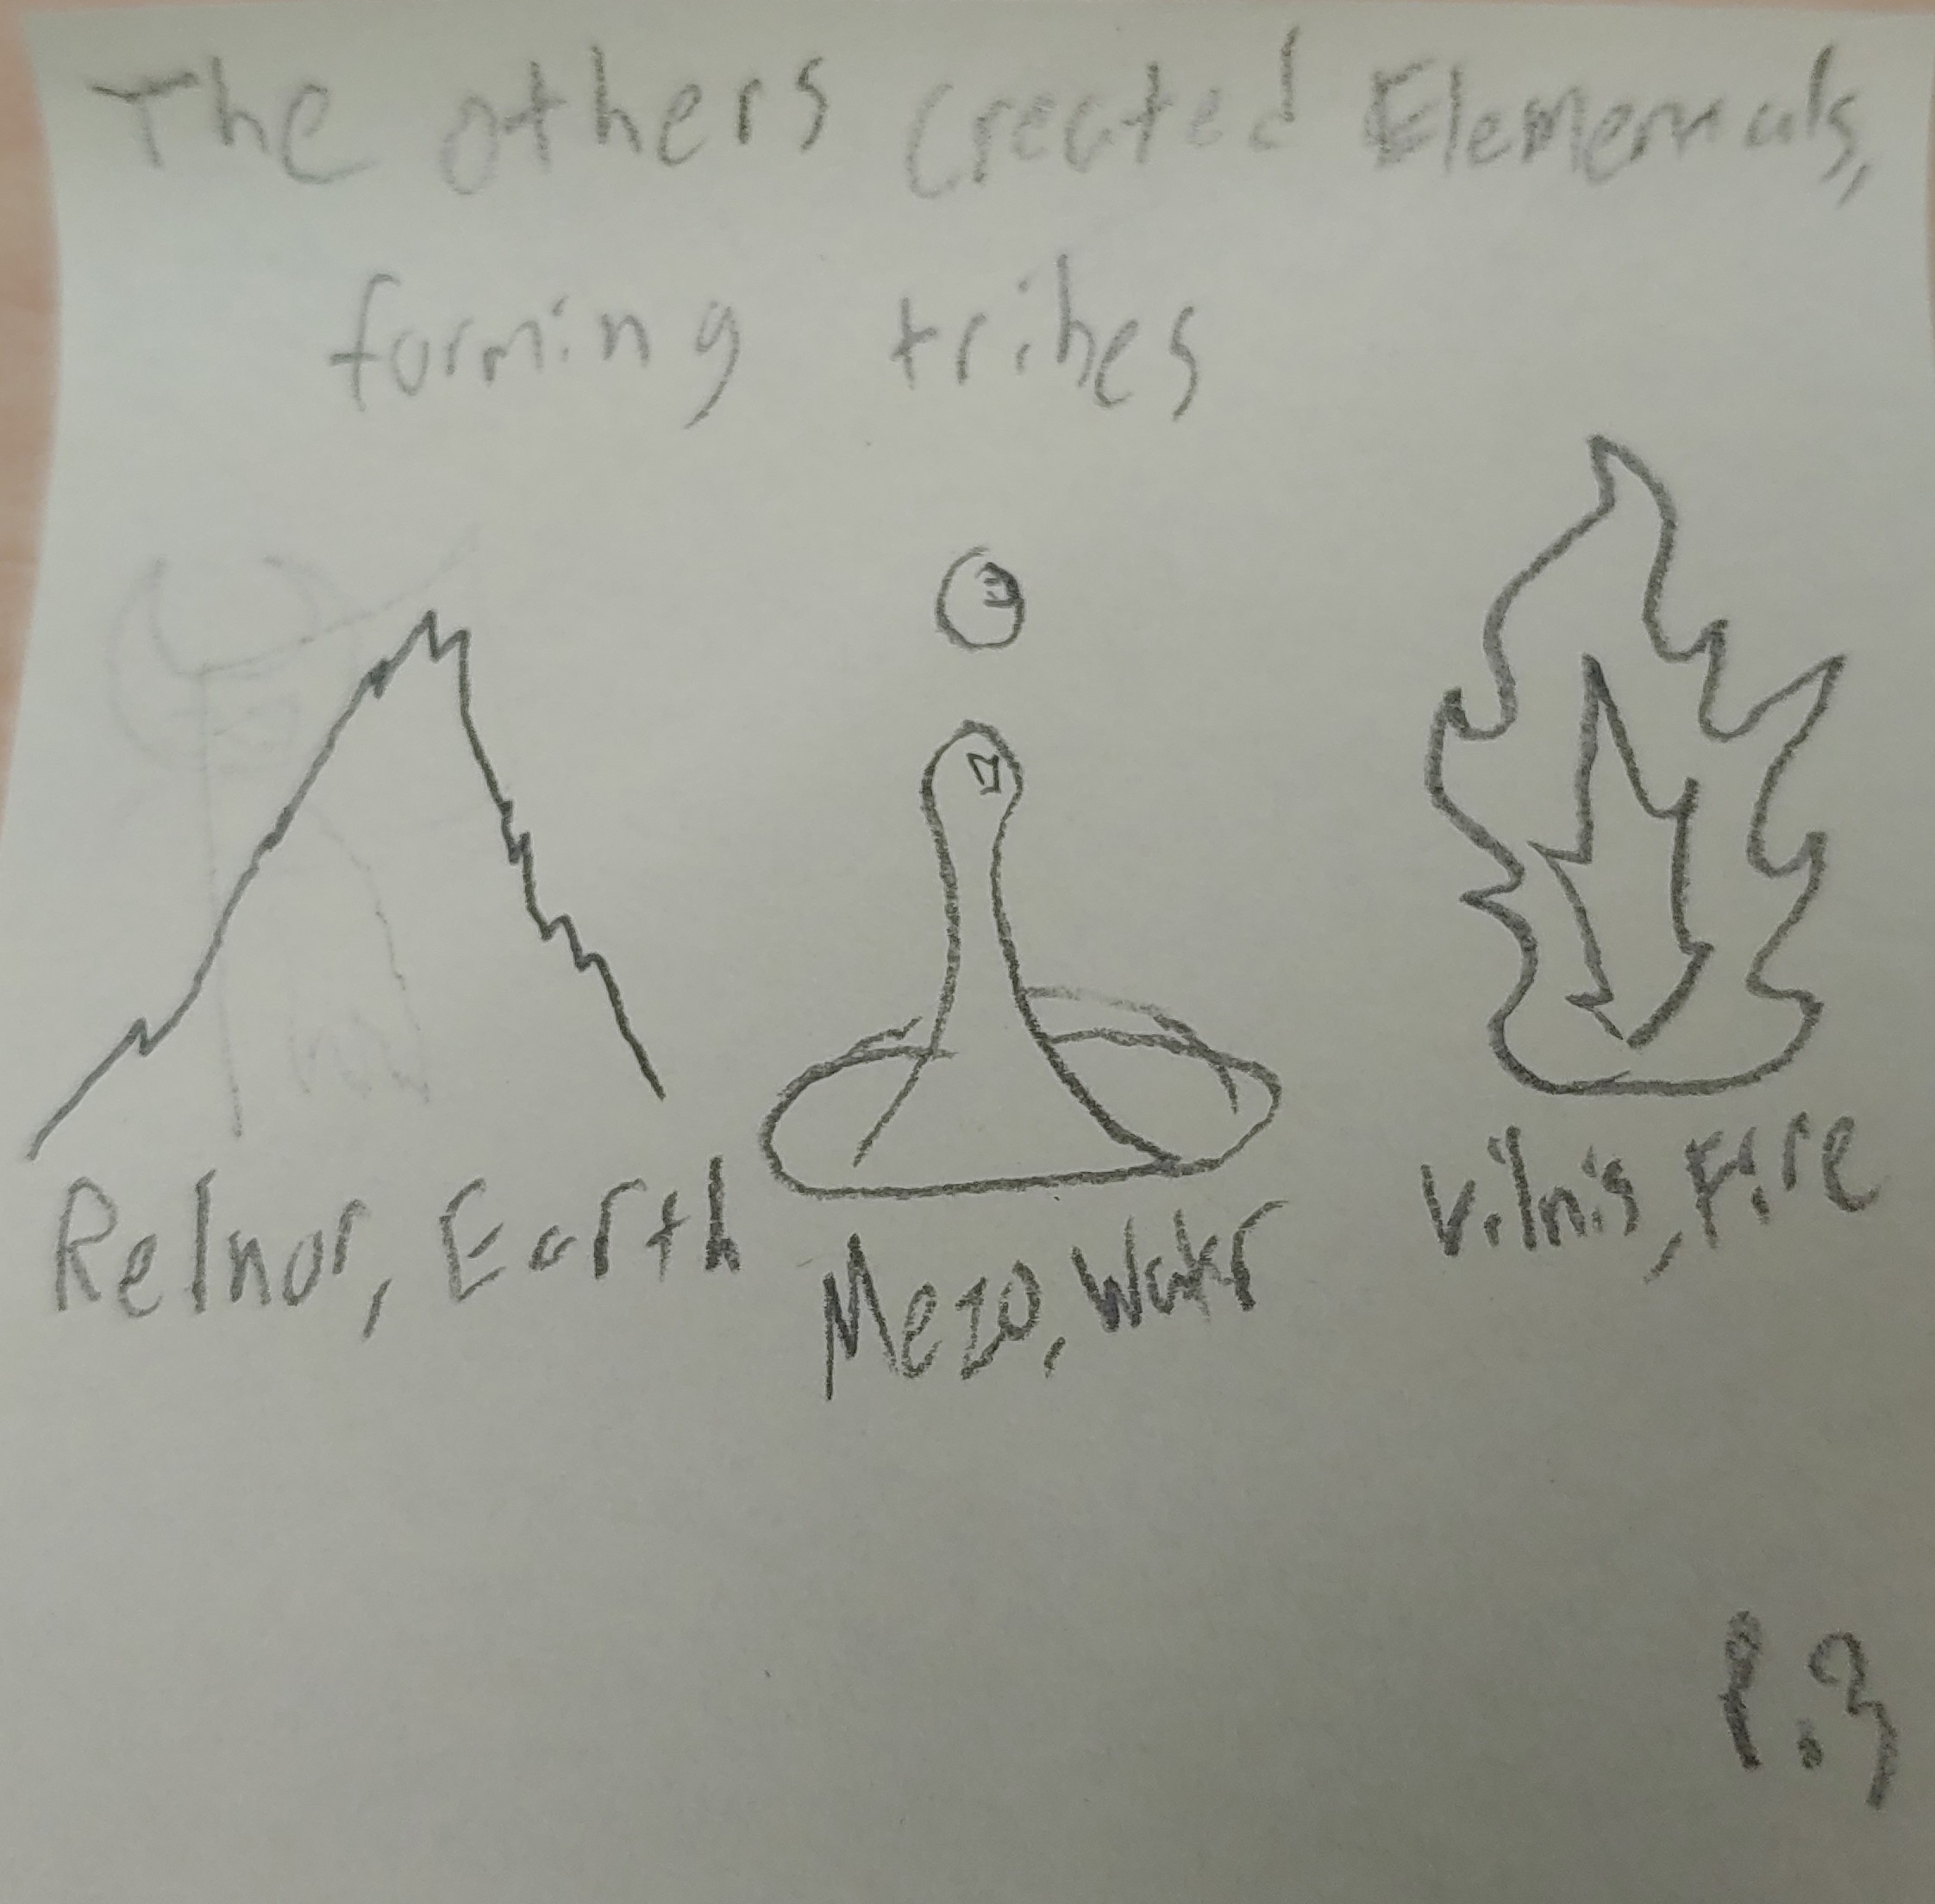 The others created Elementals,
forming tribes
Relnor, Earth
Mezo, Water
Vilnis, Fire
P.3